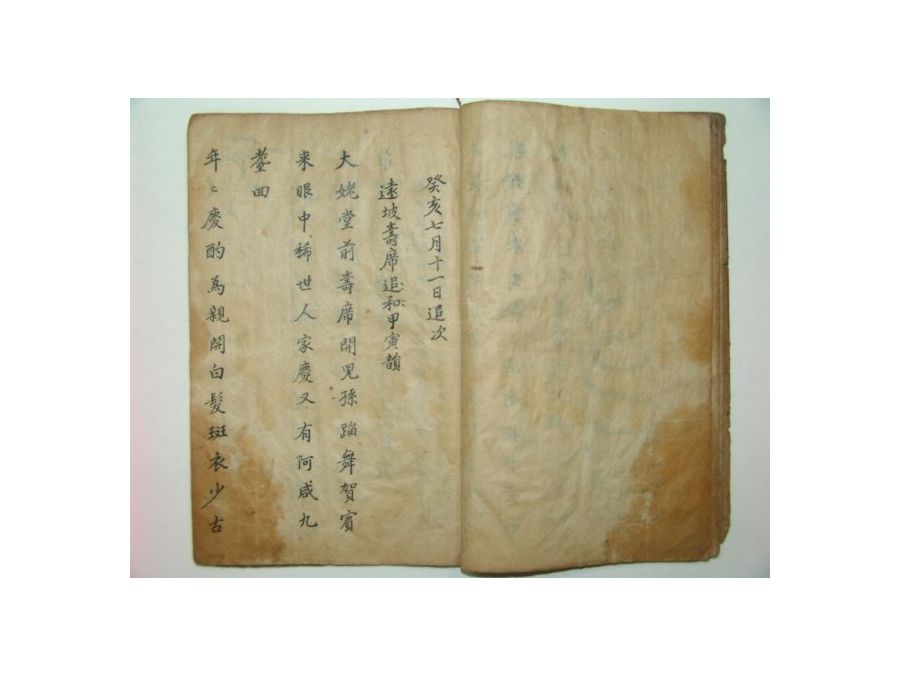 癸亥七月十一日追次
遠坡壽席追和甲寅韻
大姥堂前壽席開兒孫蹈舞賀賓
来眼中稀世人家慶又有阿咸九
耋回
年〻慶酌為親開白髮斑衣少古